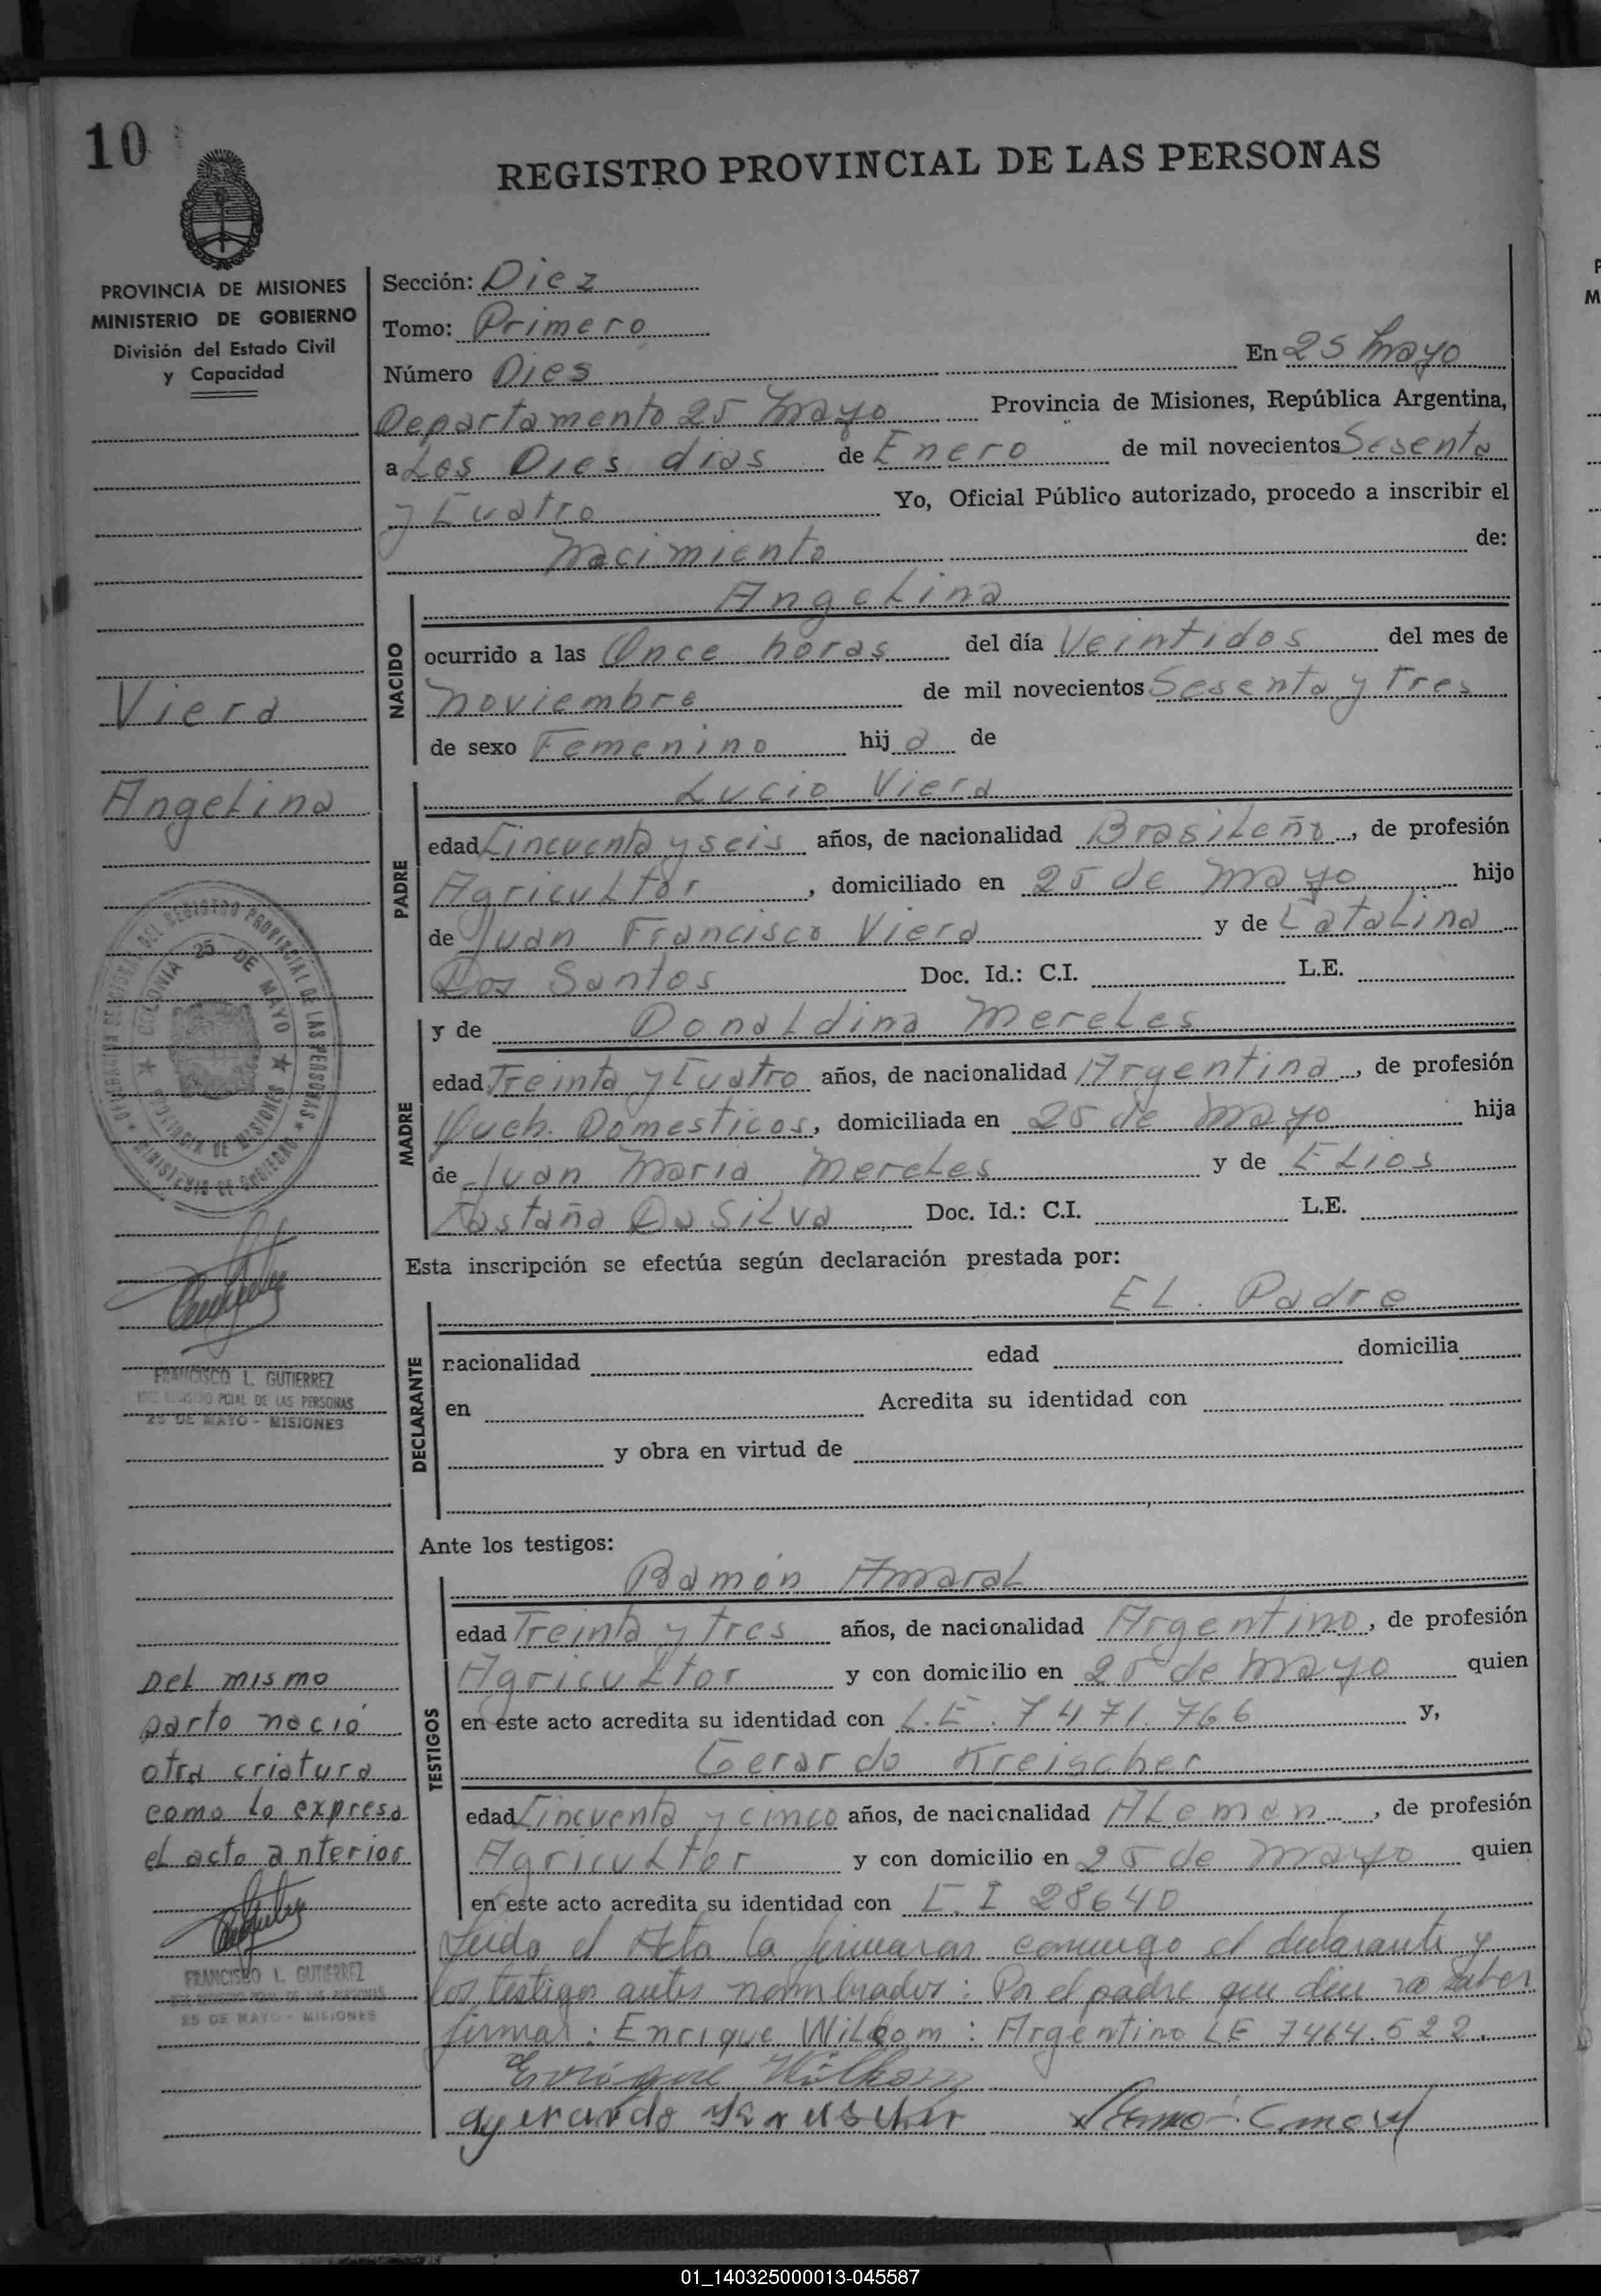 10
REGISTRO PROVINCIAL DE LAS PERSONAS
PROVINCIA DE MISIONES
MINISTERIO DE GOBIERNO
División del Estado Civil
y Capacidad
Viera
Angelina
COLONIA 25 DE MAYO
PROVINCIA DE MISIONES
REGISTRO PROVINCIAL DE LAS PERSONAS
MINISTERIO DE GOBIERNO
FRANCISCO L. GUTIERREZ
REGISTRO PCIAL DE LAS PERSONAS
25 DE MAYO - MISIONES
Del mismo
parto nació
otra criatura
como lo expresa
el acto anterior
FRANCISCO L. GUTIERREZ
25 DE MAYO - MISIONES
Sección: Diez
Tomo: Primero
Número Dies En 25 Mayo
Departamento 25 Mayo Provincia de Misiones, República Argentina,
a Los Dies dias de Enero de mil novecientos Sesenta
y Cuatro Yo, Oficial Público autorizado, procedo a inscribir el
Nacimiento de:
NACIDO
Angelina
ocurrido a las Once horas del día Veintidos del mes de
Noviembre de mil novecientos Sesenta y Tres
de sexo Femenino hija de
PADRE
Lucio Viera
edad Cincuenta y seis años, de nacionalidad Brasileño, de profesión
Agricultor, domiciliado en 25 de Mayo hijo
de Juan Francisco Viera y de Catalina
Dos Santos Doc. Id.: C.I. L.E.
MADRE
y de Donaldina Mereles
edad Treinta y Cuatro años, de nacionalidad Argentina, de profesión
Queh. Domesticos, domiciliada en 25 de Mayo hija
de Juan Maria Mereles y de Elios
Castaña Da Silva Doc. Id.: C.I. L.E.
Esta inscripción se efectúa según declaración prestada por:
DECLARANTE
EL. Padre
nacionalidad edad domicilia
en Acredita su identidad con
y obra en virtud de
Ante los testigos:
TESTIGOS
Ramón Amaral
edad Treinta y Tres años, de nacionalidad Argentino, de profesión
Agricultor y con domicilio en 25 de Mayo quien
en este acto acredita su identidad con L.E. 7471.766 y,
Gerardo Kreischer
edad Cincuenta y cinco años, de nacionalidad Aleman, de profesión
Agricultor y con domicilio en 25 de Mayo quien
en este acto acredita su identidad con C.I 28640
Leida el Acta la firmaran conmigo el declarante y
los testigos antes nombrados: Por el padre que dice no saber
firmar: Enrique Wilkom: Argentino LE 7464.522.
Enrique Wilkom
gerardo Kreischer
01_140325000013-045587